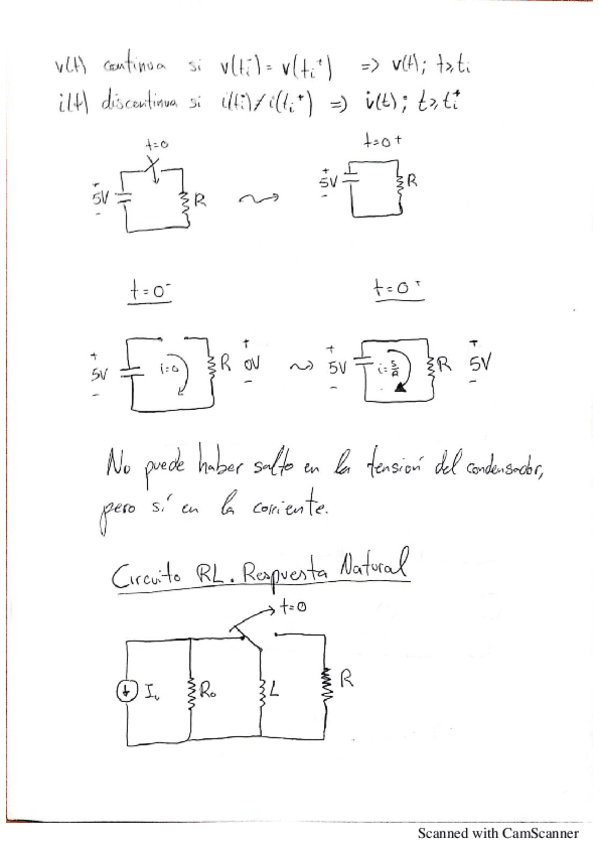 v(t) continua si v(ti⁻) = v(ti⁺) => v(t); t≥ti
i(t) discontinua si i(ti⁻) ≠ i(ti⁺) => i(t); t≥ti⁺
t=0
t=0+
+
5V
-
R
+
5V
-
R
t=0⁻
t=0⁺
+
5V
-
i=0
R
+
0V
-
+
5V
-
i=5/R
R
+
5V
-
No puede haber salto en la tensión del condensador,
pero sí en la corriente.
Circuito RL. Respuesta Natural
t=0
R₀
L
R
Scanned with CamScanner